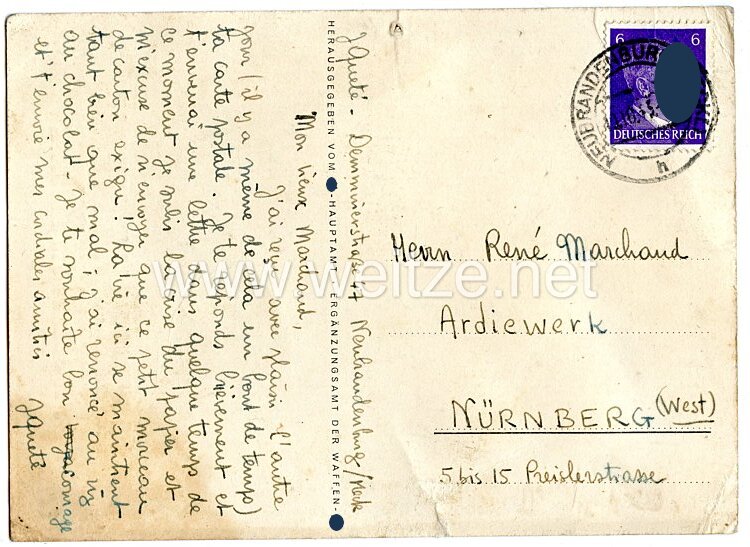 Jqueté - Demminerstrasse 47 Neubrandenburg/Meck
Mon vieux Marchand,
J'ai reçu avec plaisir l'autre
jour (il y a même de cela un bout de temps)
ta carte postale. Je te réponds brièvement et
t'enverrai une lettre dans quelque temps de
ce moment je subis la crise du papier et
m'excuse de n'envoyer que ce petit morceau
de carton exigu! La vie ici se maintient
tant bien que mal; j'ai renoncé au riz
au chocolat - Je te souhaite bon courage
et t'envoie mes cordiales amitiés
Jqueté
HERAUSGEGEBEN VOM -HAUPTAMT - ERGÄNZUNGSAMT DER WAFFEN-
6 6
DEUTSCHES REICH
NEUBRANDENBURG
h
Herrn René Marchand
Ardiewerk
NÜRNBERG (West)
5 bis 15 Preislerstrasse
www.weitze.net